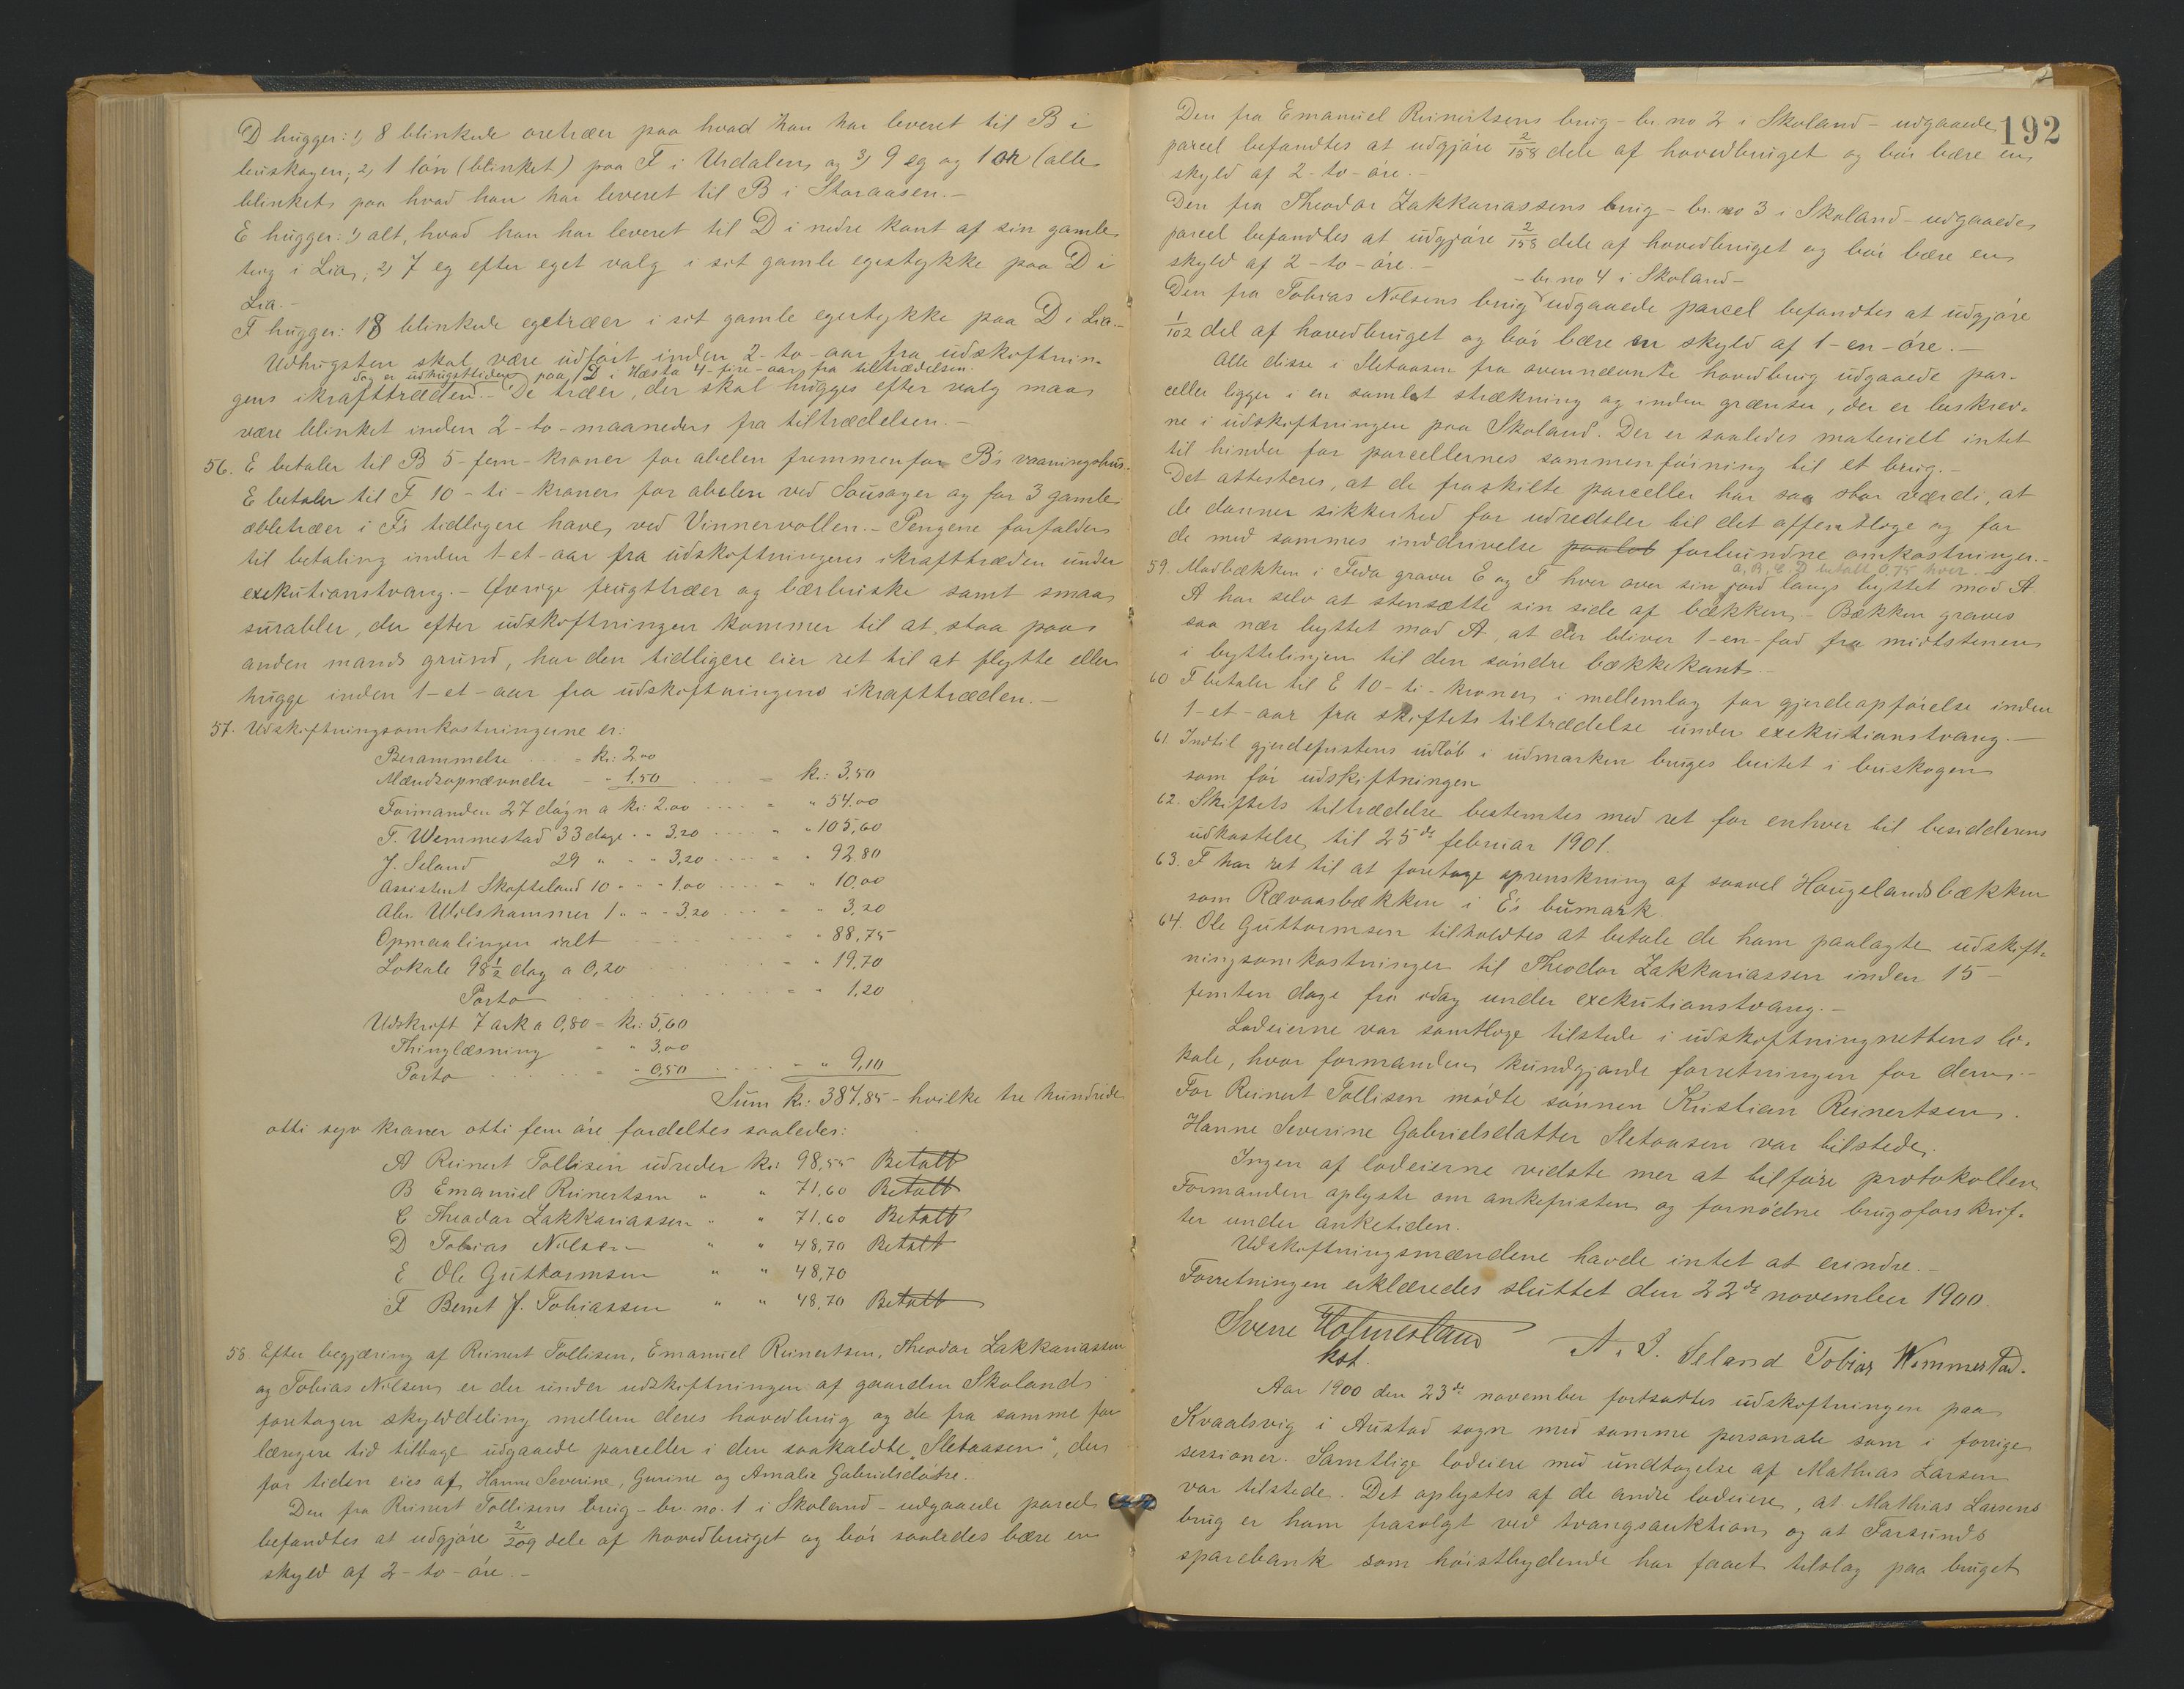 D hugger: 1, 8 blinkede oretræer paa hvad han har leveret til B i
buskogen; 2, 1 lön (blinket) paa F i Urdalen, og 3, 9 eg og 1 or (alle
blinket) paa hvad han har leveret til B i Storaasen.-
E hugger: 1, alt, hvad han har leveret til D i nedre kant af sin gamle
teig i Lia, 2, 7 eg efter eget valg i sit gamle egestykke paa D i
Lia.-
F hugger: 18 blinkede egetræer i sit gamle egestykke paa D i Lia.-
Udhugsten skal være udført inden 2-to-aar fra udskiftnin-
dog er udhugsttiden paa D i Hæsta 4-fire-aar fra tiltrædelsen.
gens ikrafttræden.- De træer, der skal hugges efter valg maa
være blinket inden 2-to-maaneder fra tiltrædelsen.-
56. E betaler til B 5-fem-kroner for abelen fremmenfor B's vaaningshus.
E betaler til F 10-ti-kroner for abelen ved Sousager og for 3 gamle
æbletræer i F's tidligere have, ved Vinnervollen.- Pengene forfalder
til betaling inden 1-et-aar fra udskiftningens ikrafttræden under
exekutionstvang.- Øvrige frugttræer og bærbuske samt smaa
surabler, der efter udskiftningen kommer til at staa paa
anden mands grund, har den tidligere eier ret til at flytte eller
hugge inden 1-et-aar fra udskiftningens ikrafttræden.-
57. Udskiftningsomkostningerne er:
Berammelse - kr: 2.00
Mændsopnævnelse - " 1,50 = kr: 3,50
Formanden 27 døgn a kr: 2.00 " " 54.00
T. Wemmestad 33 dage " " 3.20 " " 105,60
J. Seland 29 " " " 3,20 " " 92.80
Assistent Skofteland 10 " " " 1.00 " " 10.00
Abr. Wilshammer 1 " " " 3.20 " " 3,20
Opmaalingen ialt " " 88,75
Lokale 98½ dag a 0,20 " " 19,70
Porto " " 1,20
Udskrift 7 ark a 0,80 = kr: 5,60
Thinglæsning " " 3.00
Porto " " 0,50 " " 9,10
Sum kr: 387,85 - hvilke tre hundrede
otti syv kroner otti fem øre fordeltes saaledes:
A Reinert Tollisen udreder kr: 98,55 Betalt
B Emanuel Reinertsen " " 71,60 Betalt
C Theodor Zakkariassen " " 71,60 Betalt
D Tobias Nilsen " " 48,70 Betalt
E Ole Guttormsen " " 48,70
F Bernt J. Tobiassen " " 48,70 Betalt
58 Efter begjæring af Reinert Tollisen, Emanuel Reinertsen, Theodor Zakkariassen
og Tobias Nilsen, er der under udskiftningen af gaarden Skoland
foretagen skylddeling mellem deres hovedbrug og de fra samme for
længere tid tilbage udgaaede parceller i den saakaldte "Sletaasen", der
for tiden eies af Hanne Severine, Gurine og Amalie Gabrielsdøtre.
Den fra Reinert Tollisens brug - br. no. 1 i Skoland - udgaaede parcel
befandtes at udgjøre 2/209 dele af hovedbruget og bør saaledes bære en
skyld af 2-to-øre -
192
Den fra Emanuel Reinertsens brug - br. no 2 i Skoland - udgaaede
parcel befandtes at udgjøre 2/158 dele af hovedbruget og bør bære en
skyld af 2-to-øre.-
Den fra Theodor Zakkariassens brug - br. no 3 i Skoland - udgaaede
parcel befandtes at udgjøre 2/158 dele af hovedbruget og bør bære en
skyld af 2-to-øre.-
- br. no 4 i Skoland -
Den fra Tobias Nilsens brug udgaaede parcel befandtes at udgjøre
1/102 del af hovedbruget og bør bære en skyld af 1-en-øre.-
Alle disse i Sletaasen fra ovennævnte hovedbrug udgaaede par-
celler ligger i en samlet strækning og inden grænser, der er beskrev-
ne i udskiftningen paa Skoland. Der er saaledes materielt intet
til hinder for parcellernes sammenføining til et brug.-
Det attesteres, at de fraskilte parceller har saa stor værdi, at
de danner sikkerhed for udredsler til det offentlige og for
de med sammes inddrivelse paalob forbundne omkostninger.-
A, B, C, D betalt 0,75 hver.
59. Madbækken i Feda graver E og F hver over sin jord langs byttet mod A.
A har selv at stensætte sin side af bækken.- Bækken graves
saa nær byttet mod A, at der bliver 1-en-fod fra midtstenen
i byttelinjen til den søndre bækkekant.-
60 F betaler til E 10-ti-kroner i mellemlag for gjerdeopførelse inden
1-et-aar fra skiftets tiltrædelse under exekutionstvang.-
61. Indtil gjerdefristens udløb i udmarken bruges beitet i buskogen
som før udskiftningen
62. Skiftets tiltrædelse bestemtes med ret for enhver til besidderens
udkastelse, til 25de februar 1901.
63. F har ret til at foretage oprenskning af saavel Haugelandsbækken
som Rævaasbækken i E's bumark.
64. Ole Guttormsen tilholdtes at betale de ham paalagte udskift-
ningsomkostninger til Theodor Zakkariassen inden 15-
femten dage fra idag under exekutionstvang.-
Lodeierne var samtlige tilstede i udskiftningsrettens lo-
kale, hvor formanden kundgjorde forretningen for dem.-
For Reinert Tollisen mødte sønnen Kristian Reinertsen.
Hanne Severine Gabrielsdatter Sletaasen var tilstede.
Ingen af lodeierne vidste mer at tilføre protokollen
Formanden oplyste om ankefristen og fornødne brugsforskrif-
ter under anketiden.
Udskiftningsmændene havde intet at erindre.-
Forretningen erklæredes sluttet den 22de november 1900.
Sverre Holmesland
kst.
A. J. Seland Tobias Wemmestad.
Aar 1900 den 23de november fortsattes udskiftningen paa
Kvaalsvig i Austad sogn med samme personale som i forrige
sessioner. Samtlige lodeiere med undtagelse af Mathias Larsen
var tilstede. Det oplystes af de andre lodeiere, at Mathias Larsens
brug er ham frasolgt ved tvangsauktion, og at Farsunds
sparebank som høistbydende har faaet tilslag paa bruget